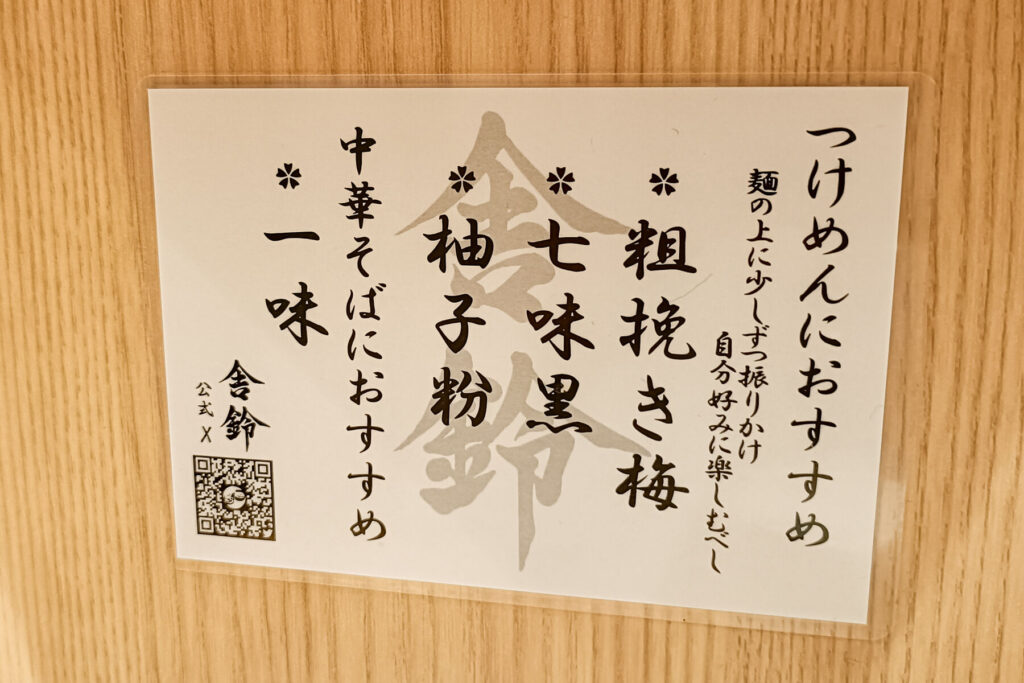 つけめんにおすすめ
麺の上に少しずつ振りかけ
自分好みに楽しむべし
✽粗挽き梅
✽七味黒
✽柚子粉
中華そばにおすすめ
✽一味
舎鈴
公式X
舎鈴